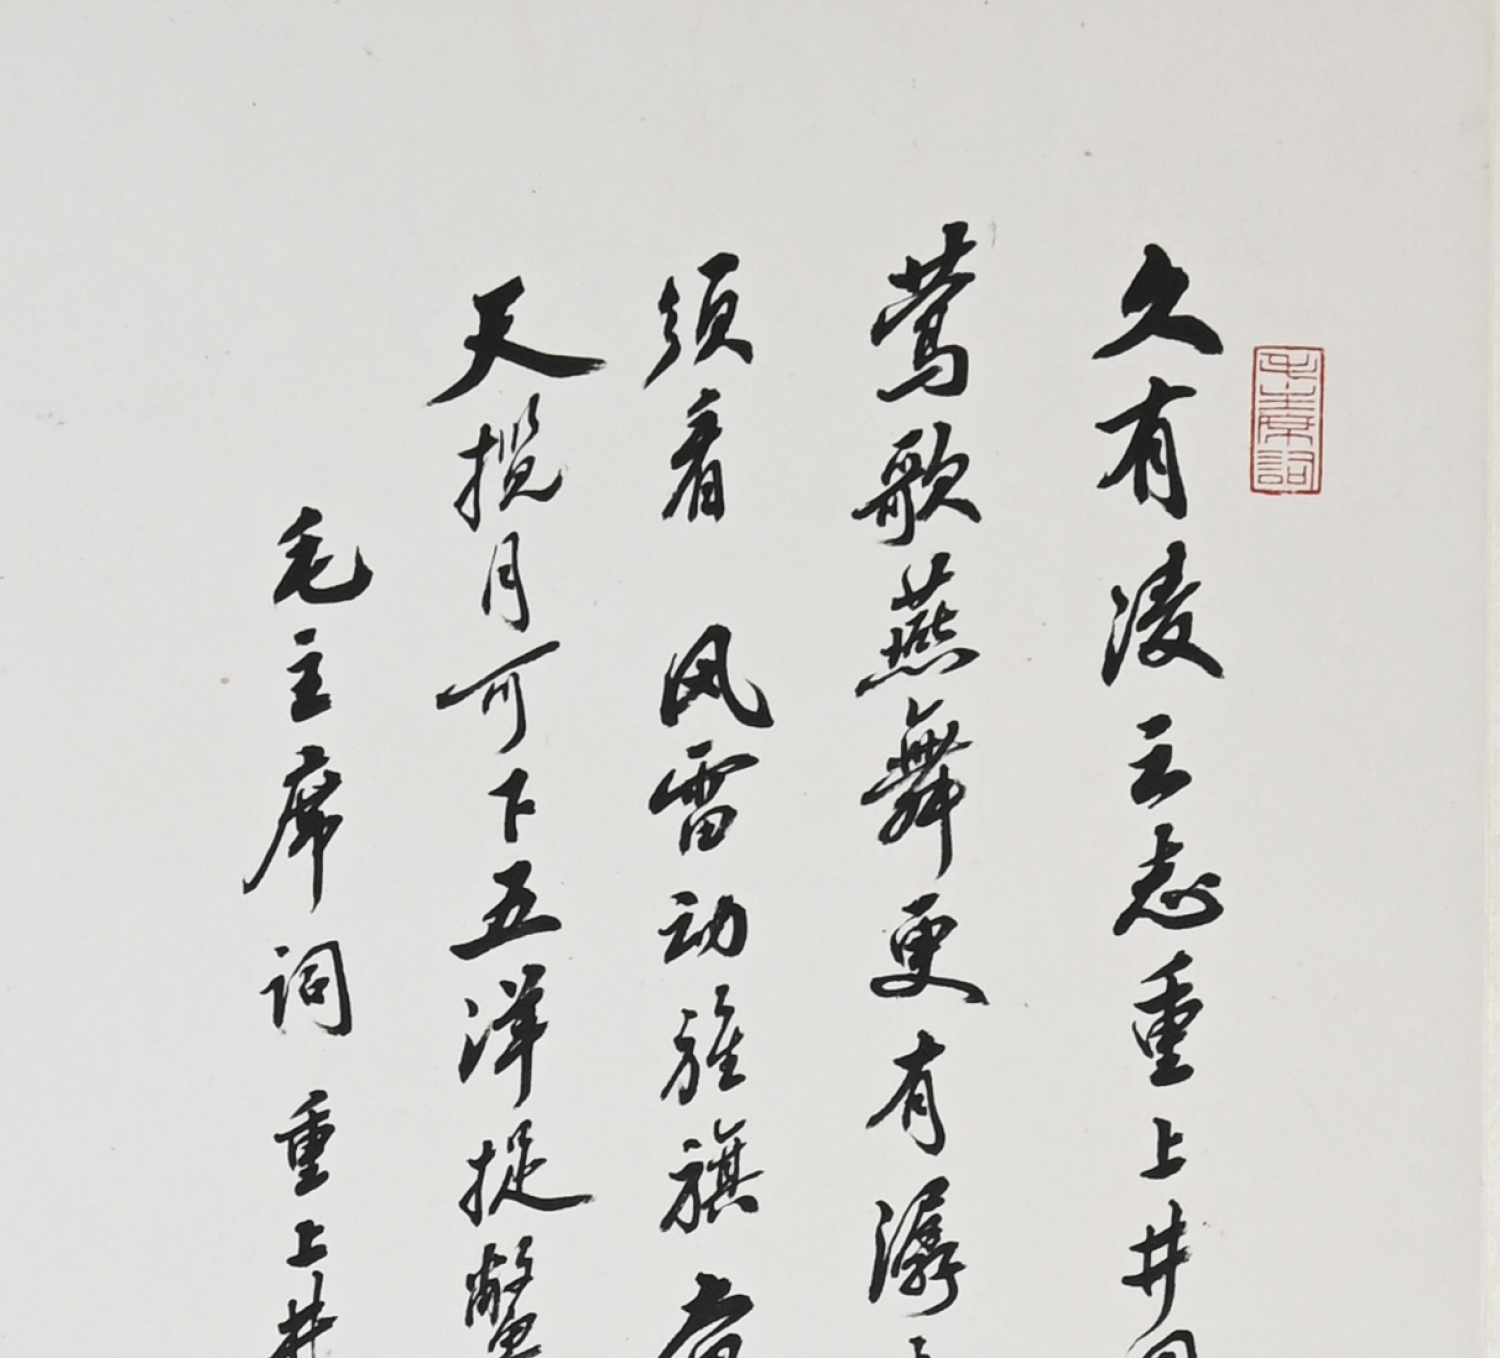 久有凌云志重上井
莺歌燕舞更有潺
须看 风雷动旌旗奋
天揽月可下五洋捉鳖
毛主席词 重上井
毛主席词